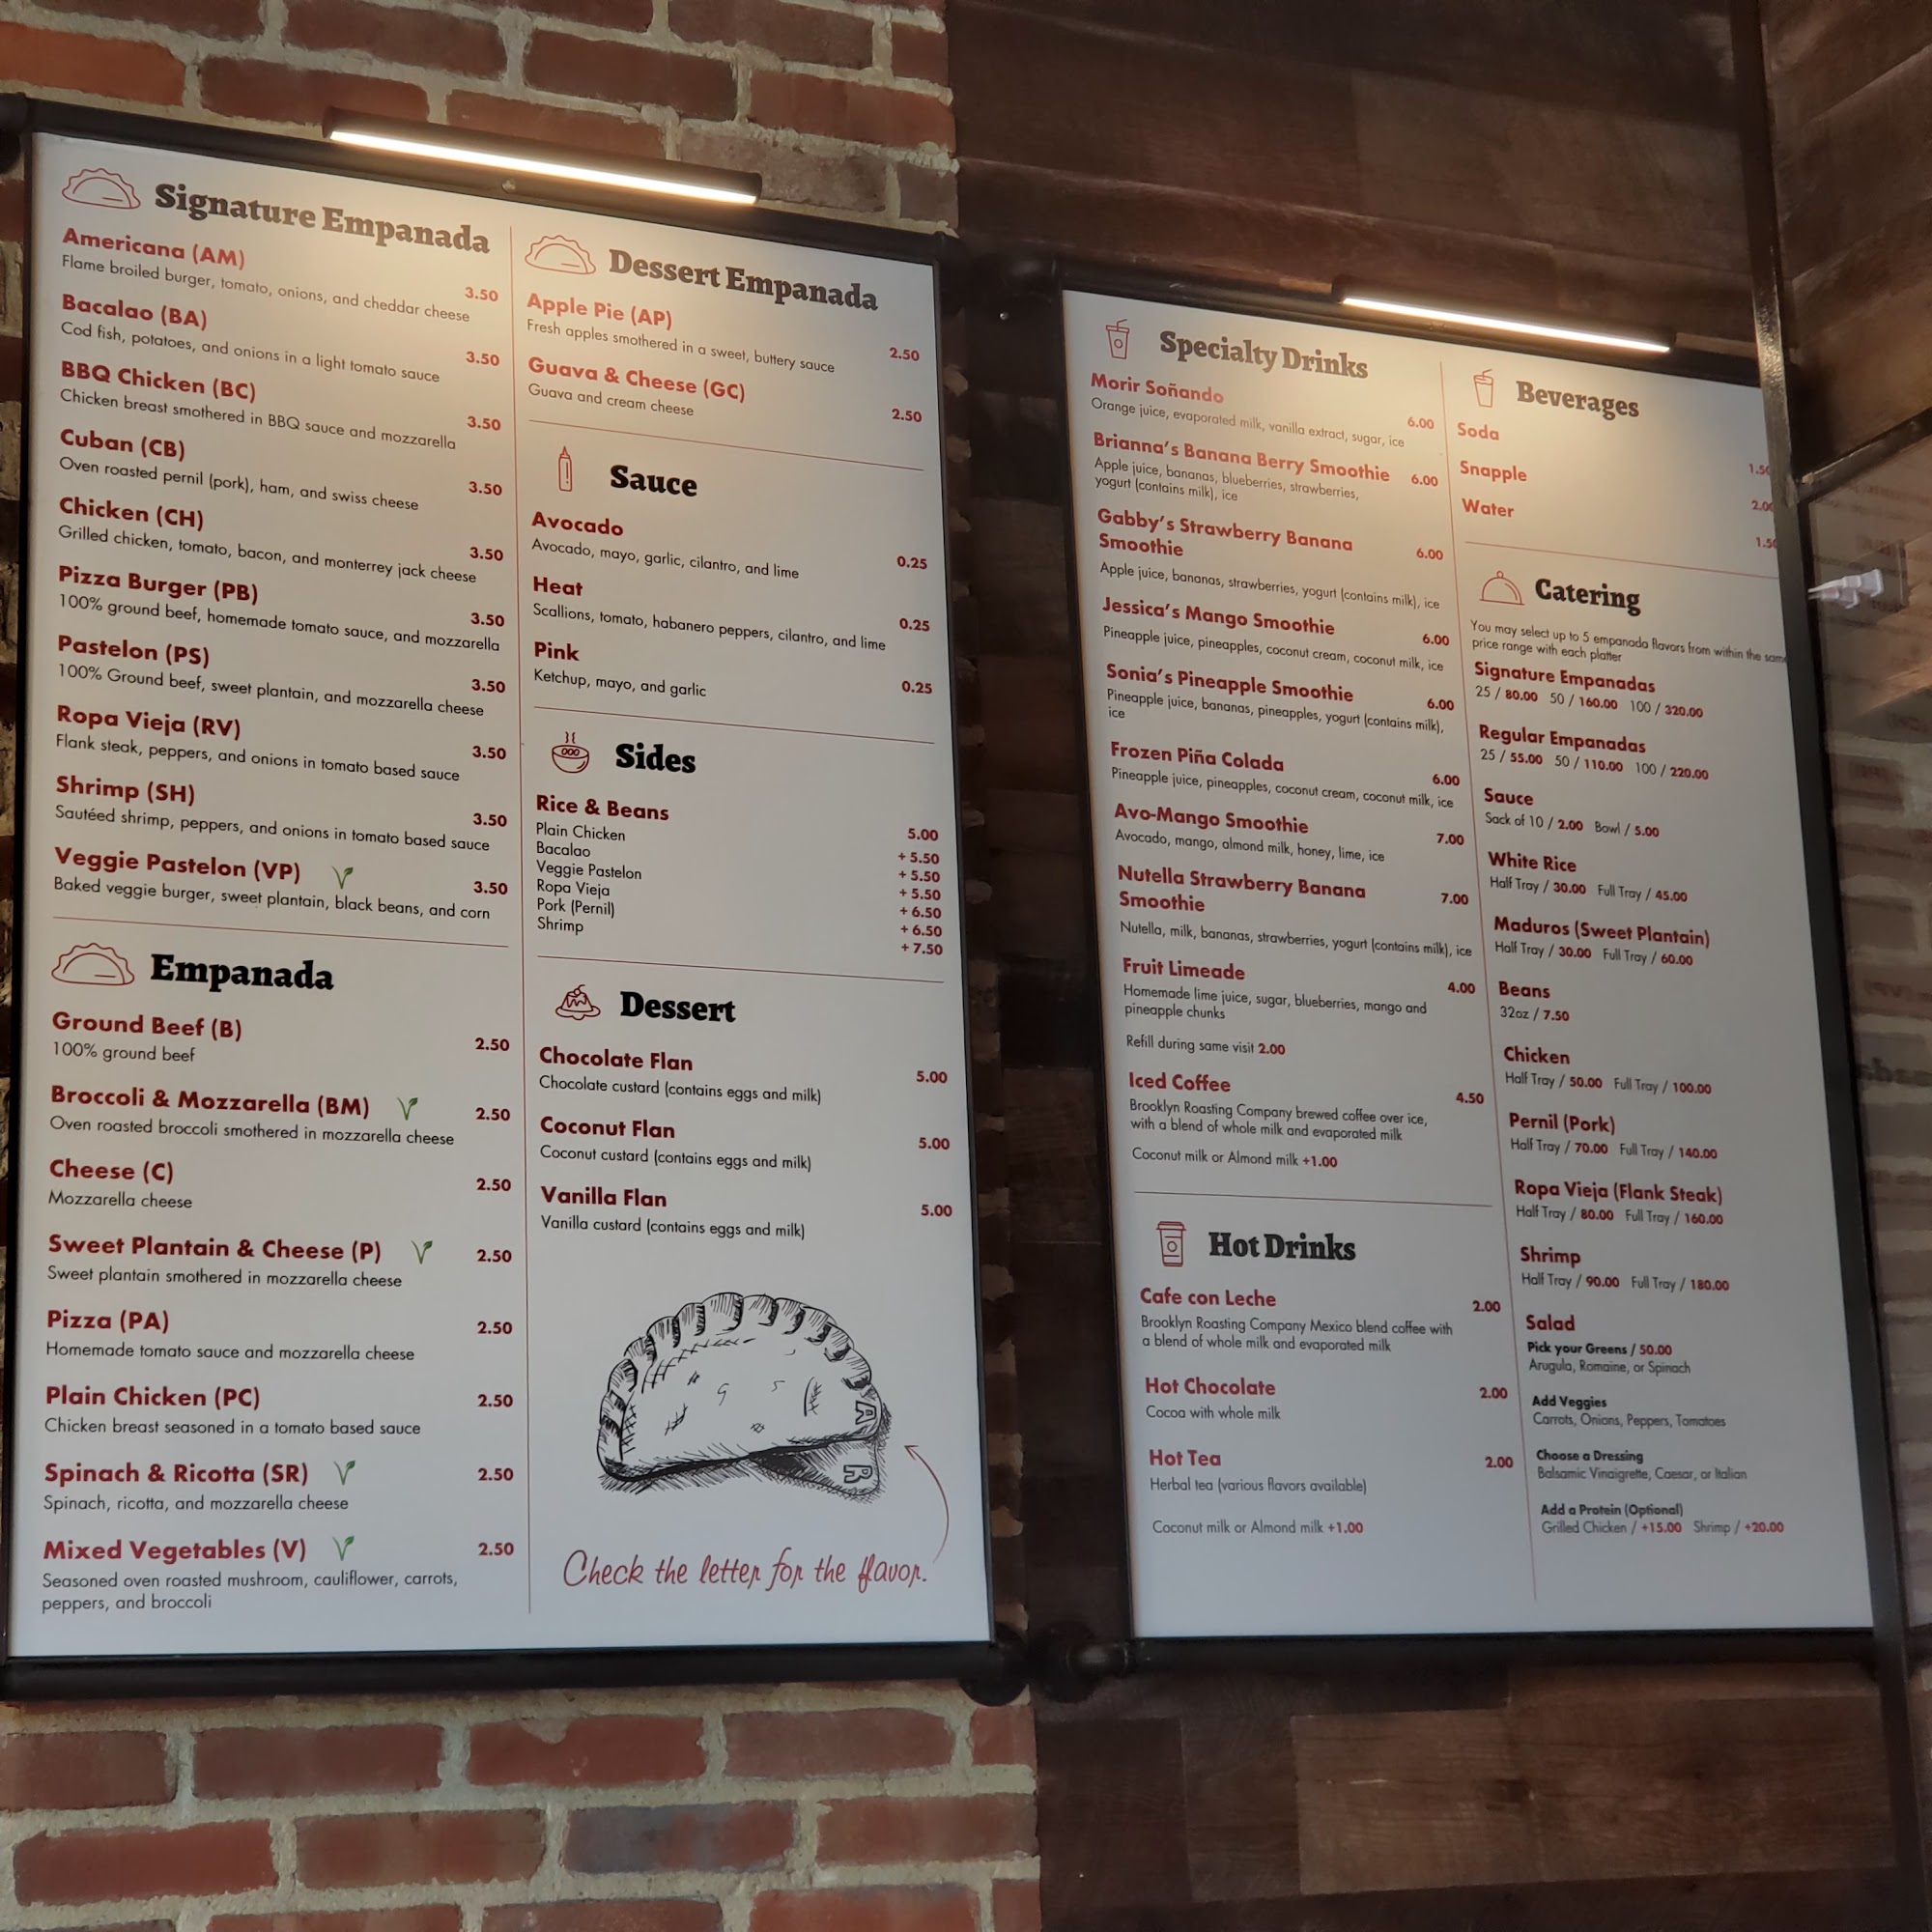 Signature Empanada
Americana (AM)
Flame broiled burger, tomato, onions, and cheddar cheese
3.50
Bacalao (BA)
Cod fish, potatoes, and onions in a light tomato sauce
3.50
BBQ Chicken (BC)
Chicken breast smothered in BBQ sauce and mozzarella
3.50
Cuban (CB)
Oven roasted pernil (pork), ham, and swiss cheese
3.50
Chicken (CH)
Grilled chicken, tomato, bacon, and monterrey jack cheese
3.50
Pizza Burger (PB)
100% ground beef, homemade tomato sauce, and mozzarella
3.50
Pastelon (PS)
100% Ground beef, sweet plantain, and mozzarella cheese
3.50
Ropa Vieja (RV)
Flank steak, peppers, and onions in tomato based sauce
3.50
Shrimp (SH)
Sautéed shrimp, peppers, and onions in tomato based sauce
3.50
Veggie Pastelon (VP)
Baked veggie burger, sweet plantain, black beans, and corn
3.50
Empanada
Ground Beef (B)
100% ground beef
2.50
Broccoli & Mozzarella (BM)
Oven roasted broccoli smothered in mozzarella cheese
2.50
Cheese (C)
Mozzarella cheese
2.50
Sweet Plantain & Cheese (P)
Sweet plantain smothered in mozzarella cheese
2.50
Pizza (PA)
Homemade tomato sauce and mozzarella cheese
2.50
Plain Chicken (PC)
Chicken breast seasoned in a tomato based sauce
2.50
Spinach & Ricotta (SR)
Spinach, ricotta, and mozzarella cheese
2.50
Mixed Vegetables (V)
Seasoned oven roasted mushroom, cauliflower, carrots,
peppers, and broccoli
2.50
Dessert Empanada
Apple Pie (AP)
Fresh apples smothered in a sweet, buttery sauce
2.50
Guava & Cheese (GC)
Guava and cream cheese
2.50
Sauce
Avocado
Avocado, mayo, garlic, cilantro, and lime
0.25
Heat
Scallions, tomato, habanero peppers, cilantro, and lime
0.25
Pink
Ketchup, mayo, and garlic
0.25
Sides
Rice & Beans 5.00
Plain Chicken + 5.50
Bacalao + 5.50
Veggie Pastelon + 5.50
Ropa Vieja + 6.50
Pork (Pernil) + 6.50
Shrimp + 7.50
Dessert
Chocolate Flan
Chocolate custard (contains eggs and milk)
5.00
Coconut Flan
Coconut custard (contains eggs and milk)
5.00
Vanilla Flan
Vanilla custard (contains eggs and milk)
5.00
A
R
Check the letter for the flavor.
Specialty Drinks
Morir Soñando
Orange juice, evaporated milk, vanilla extract, sugar, ice
6.00
Brianna's Banana Berry Smoothie 6.00
Apple juice, bananas, blueberries, strawberries,
yogurt (contains milk), ice
Gabby's Strawberry Banana
Smoothie
6.00
Apple juice, bananas, strawberries, yogurt (contains milk), ice
Jessica's Mango Smoothie 6.00
Pineapple juice, pineapples, coconut cream, coconut milk, ice
Sonia's Pineapple Smoothie 6.00
Pineapple juice, bananas, pineapples, yogurt (contains milk),
ice
Frozen Piña Colada 6.00
Pineapple juice, pineapples, coconut cream, coconut milk, ice
Avo-Mango Smoothie 7.00
Avocado, mango, almond milk, honey, lime, ice
Nutella Strawberry Banana
Smoothie
7.00
Nutella, milk, bananas, strawberries, yogurt (contains milk), ice
Fruit Limeade 4.00
Homemade lime juice, sugar, blueberries, mango and
pineapple chunks
Refill during same visit 2.00
Iced Coffee 4.50
Brooklyn Roasting Company brewed coffee over ice,
with a blend of whole milk and evaporated milk
Coconut milk or Almond milk +1.00
Hot Drinks
Cafe con Leche 2.00
Brooklyn Roasting Company Mexico blend coffee with
a blend of whole milk and evaporated milk
Hot Chocolate 2.00
Cocoa with whole milk
Hot Tea 2.00
Herbal tea (various flavors available)
Coconut milk or Almond milk +1.00
Beverages
Soda 1.50
Snapple 2.00
Water 1.50
Catering
You may select up to 5 empanada flavors from within the same
price range with each platter
Signature Empanadas
25 / 80.00 50 / 160.00 100 / 320.00
Regular Empanadas
25 / 55.00 50 / 110.00 100 / 220.00
Sauce
Sack of 10 / 2.00 Bowl / 5.00
White Rice
Half Tray / 30.00 Full Tray / 45.00
Maduros (Sweet Plantain)
Half Tray / 30.00 Full Tray / 60.00
Beans
32oz / 7.50
Chicken
Half Tray / 50.00 Full Tray / 100.00
Pernil (Pork)
Half Tray / 70.00 Full Tray / 140.00
Ropa Vieja (Flank Steak)
Half Tray / 80.00 Full Tray / 160.00
Shrimp
Half Tray / 90.00 Full Tray / 180.00
Salad
Pick your Greens / 50.00
Arugula, Romaine, or Spinach
Add Veggies
Carrots, Onions, Peppers, Tomatoes
Choose a Dressing
Balsamic Vinaigrette, Caesar, or Italian
Add a Protein (Optional)
Grilled Chicken / +15.00 Shrimp / +20.00